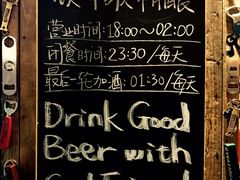 营业时间:18:00~02:00
闭餐时间:23:30/每天
最后一轮加酒:01:30/每天
Drink Good
Beer with